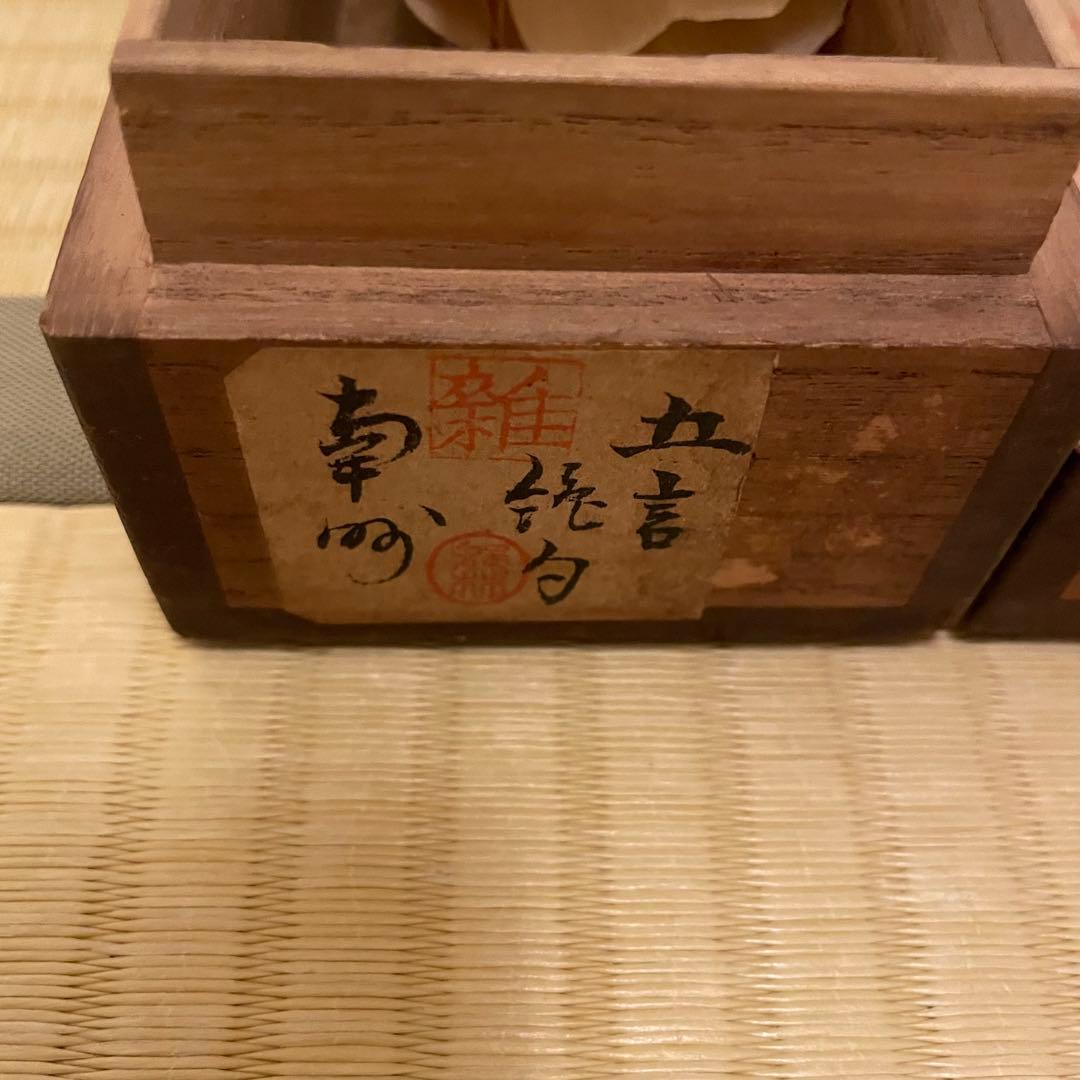 五言
絶句
雑
南州